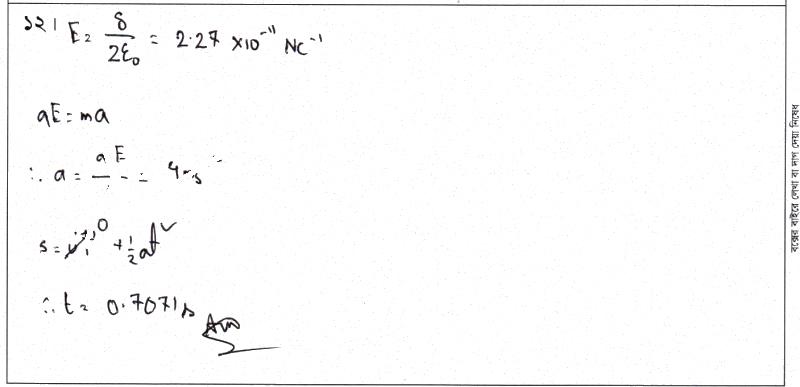 ১২। E = δ/2ε₀ = 2.27 ×10⁻¹¹ NC⁻¹
qE = ma
∴ a = qE/ = 4 ms
s = + ½at²
∴ t = 0.7071 s Ans
বক্সের বাইরে লেখা বা দাগ দেয়া নিষেধ